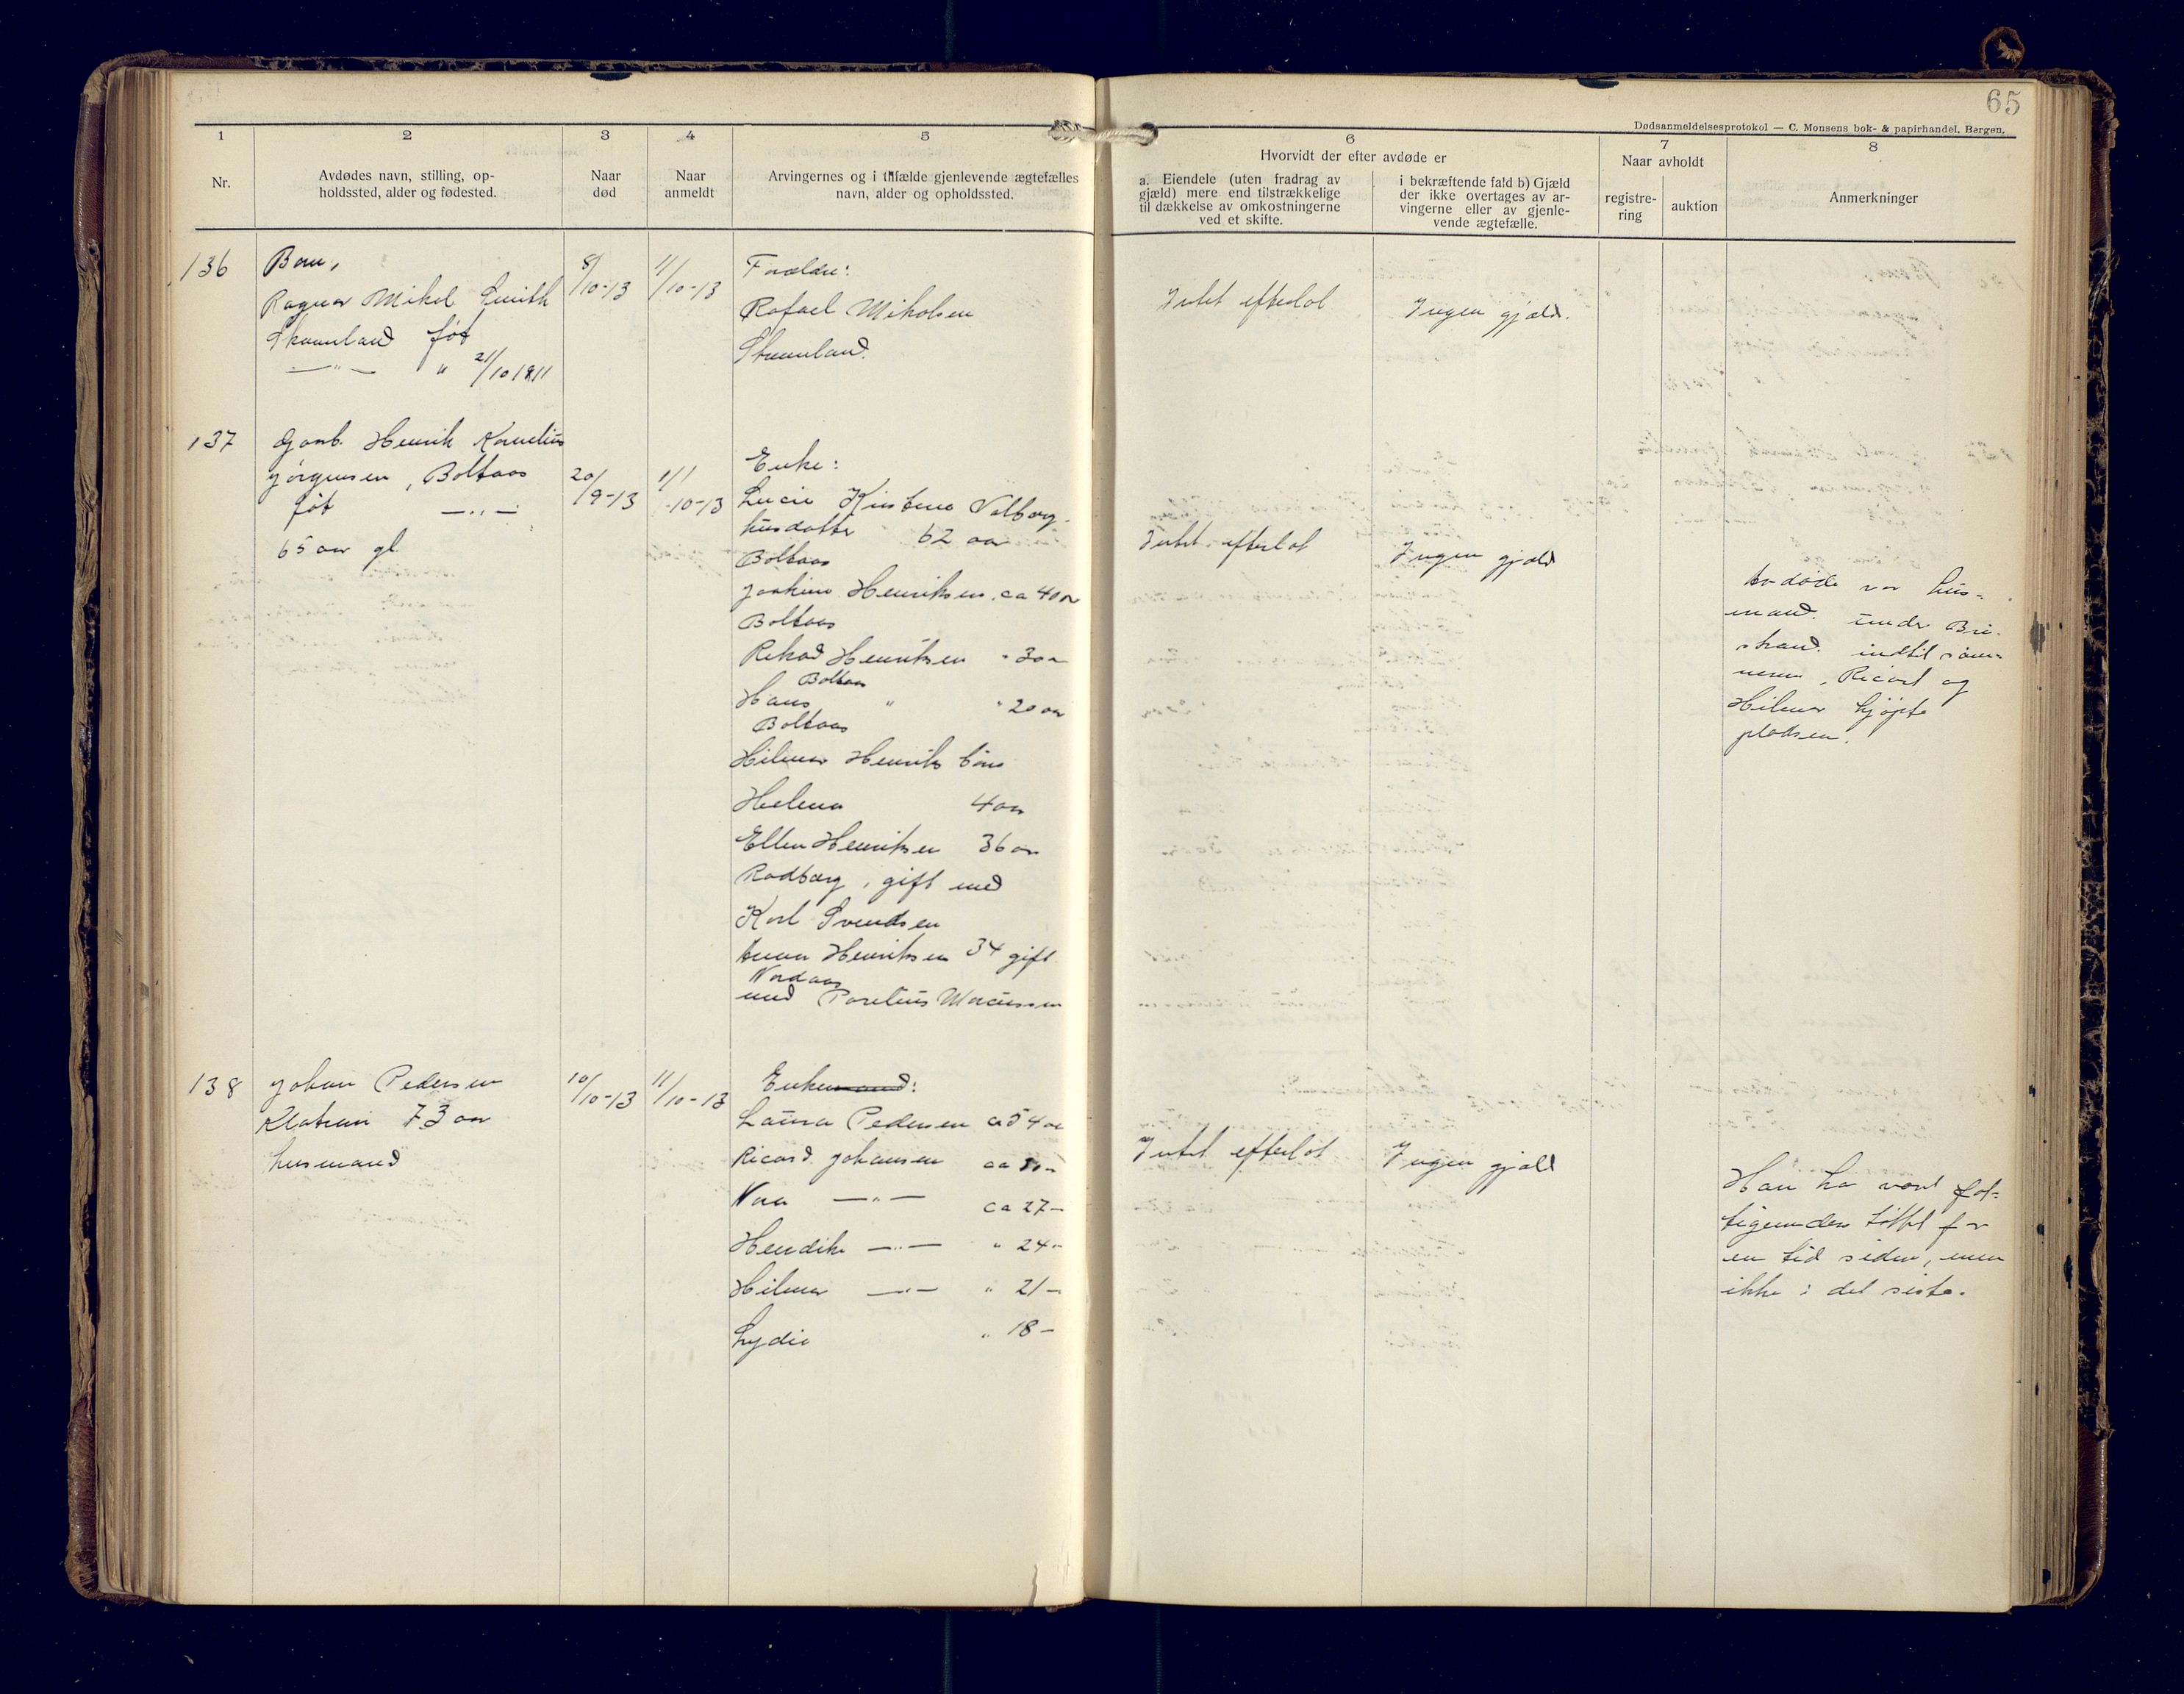 65
Dødsanmeldelsesprotokol — C. Monsens bok- & papirhandel, Bergen.
1 2 3 4 5 6 7 8
Nr.
Avdødes navn, stilling, op-
holdssted, alder og fødested.
Naar
død
Naar
anmeldt
Arvingernes og i tilfælde gjenlevende ægtefælles
navn, alder og opholdssted.
Hvorvidt der efter avdøde er
a. Eiendele (uten fradrag av
gjæld) mere end tilstrækkelige
til dækkelse av omkostningerne
ved et skifte.
i bekræftende fald b) Gjæld
der ikke overtages av ar-
vingerne eller av gjenle-
vende ægtefælle.
Naar avholdt
registre-
ring
auktion
Anmerkninger
136
Barn,
Ragnar Mikal Smith
føt
—"— " 21/10 1911
8/10-13
11/10-13
Forældre:
Rafael Mikalsen
Intet efterlat
Ingen gjæld.
137
Gaarb. Henrik Kornelius
Jørgensen, Boltaas
føt —"—
65 aar gl.
20/9-13
11/10-13
Enke:
Lucie
husdatter 62 aar
Boltaas
Joakim Henriksen ca 40 aar
Boltaas
Rikad Henriksen " 30 aar
Boltaas
Hans " " 20 aar
Boltaas
Hilmar Henriks
Helmer
Ellen Henriksen 36 aar
Rødberg, gift med
Karl Svendsen
Anna Henriksen 34 gift
Nordaas
med
Intet efterlat
Ingen gjæld
Avdøde var hus-
mand under Bri-
strand indtil søn-
nerne, Ricard og
Hilmar kjøpte
pladsen.
138
Johan Pedersen
73 aar
husmand
10/10-13
11/10-13
Enkemand:
Laura Pedersen ca 54 aar
Ricard Johansen ca 30 —
—"— ca 27 —
—"— " 24 —
Hilmar —"— " 21 —
Lydia " 18 —
Intet efterlat
Ingen gjæld
Han har vært fat-
tigunderstøttet for
en tid siden, men
ikke i det siste.